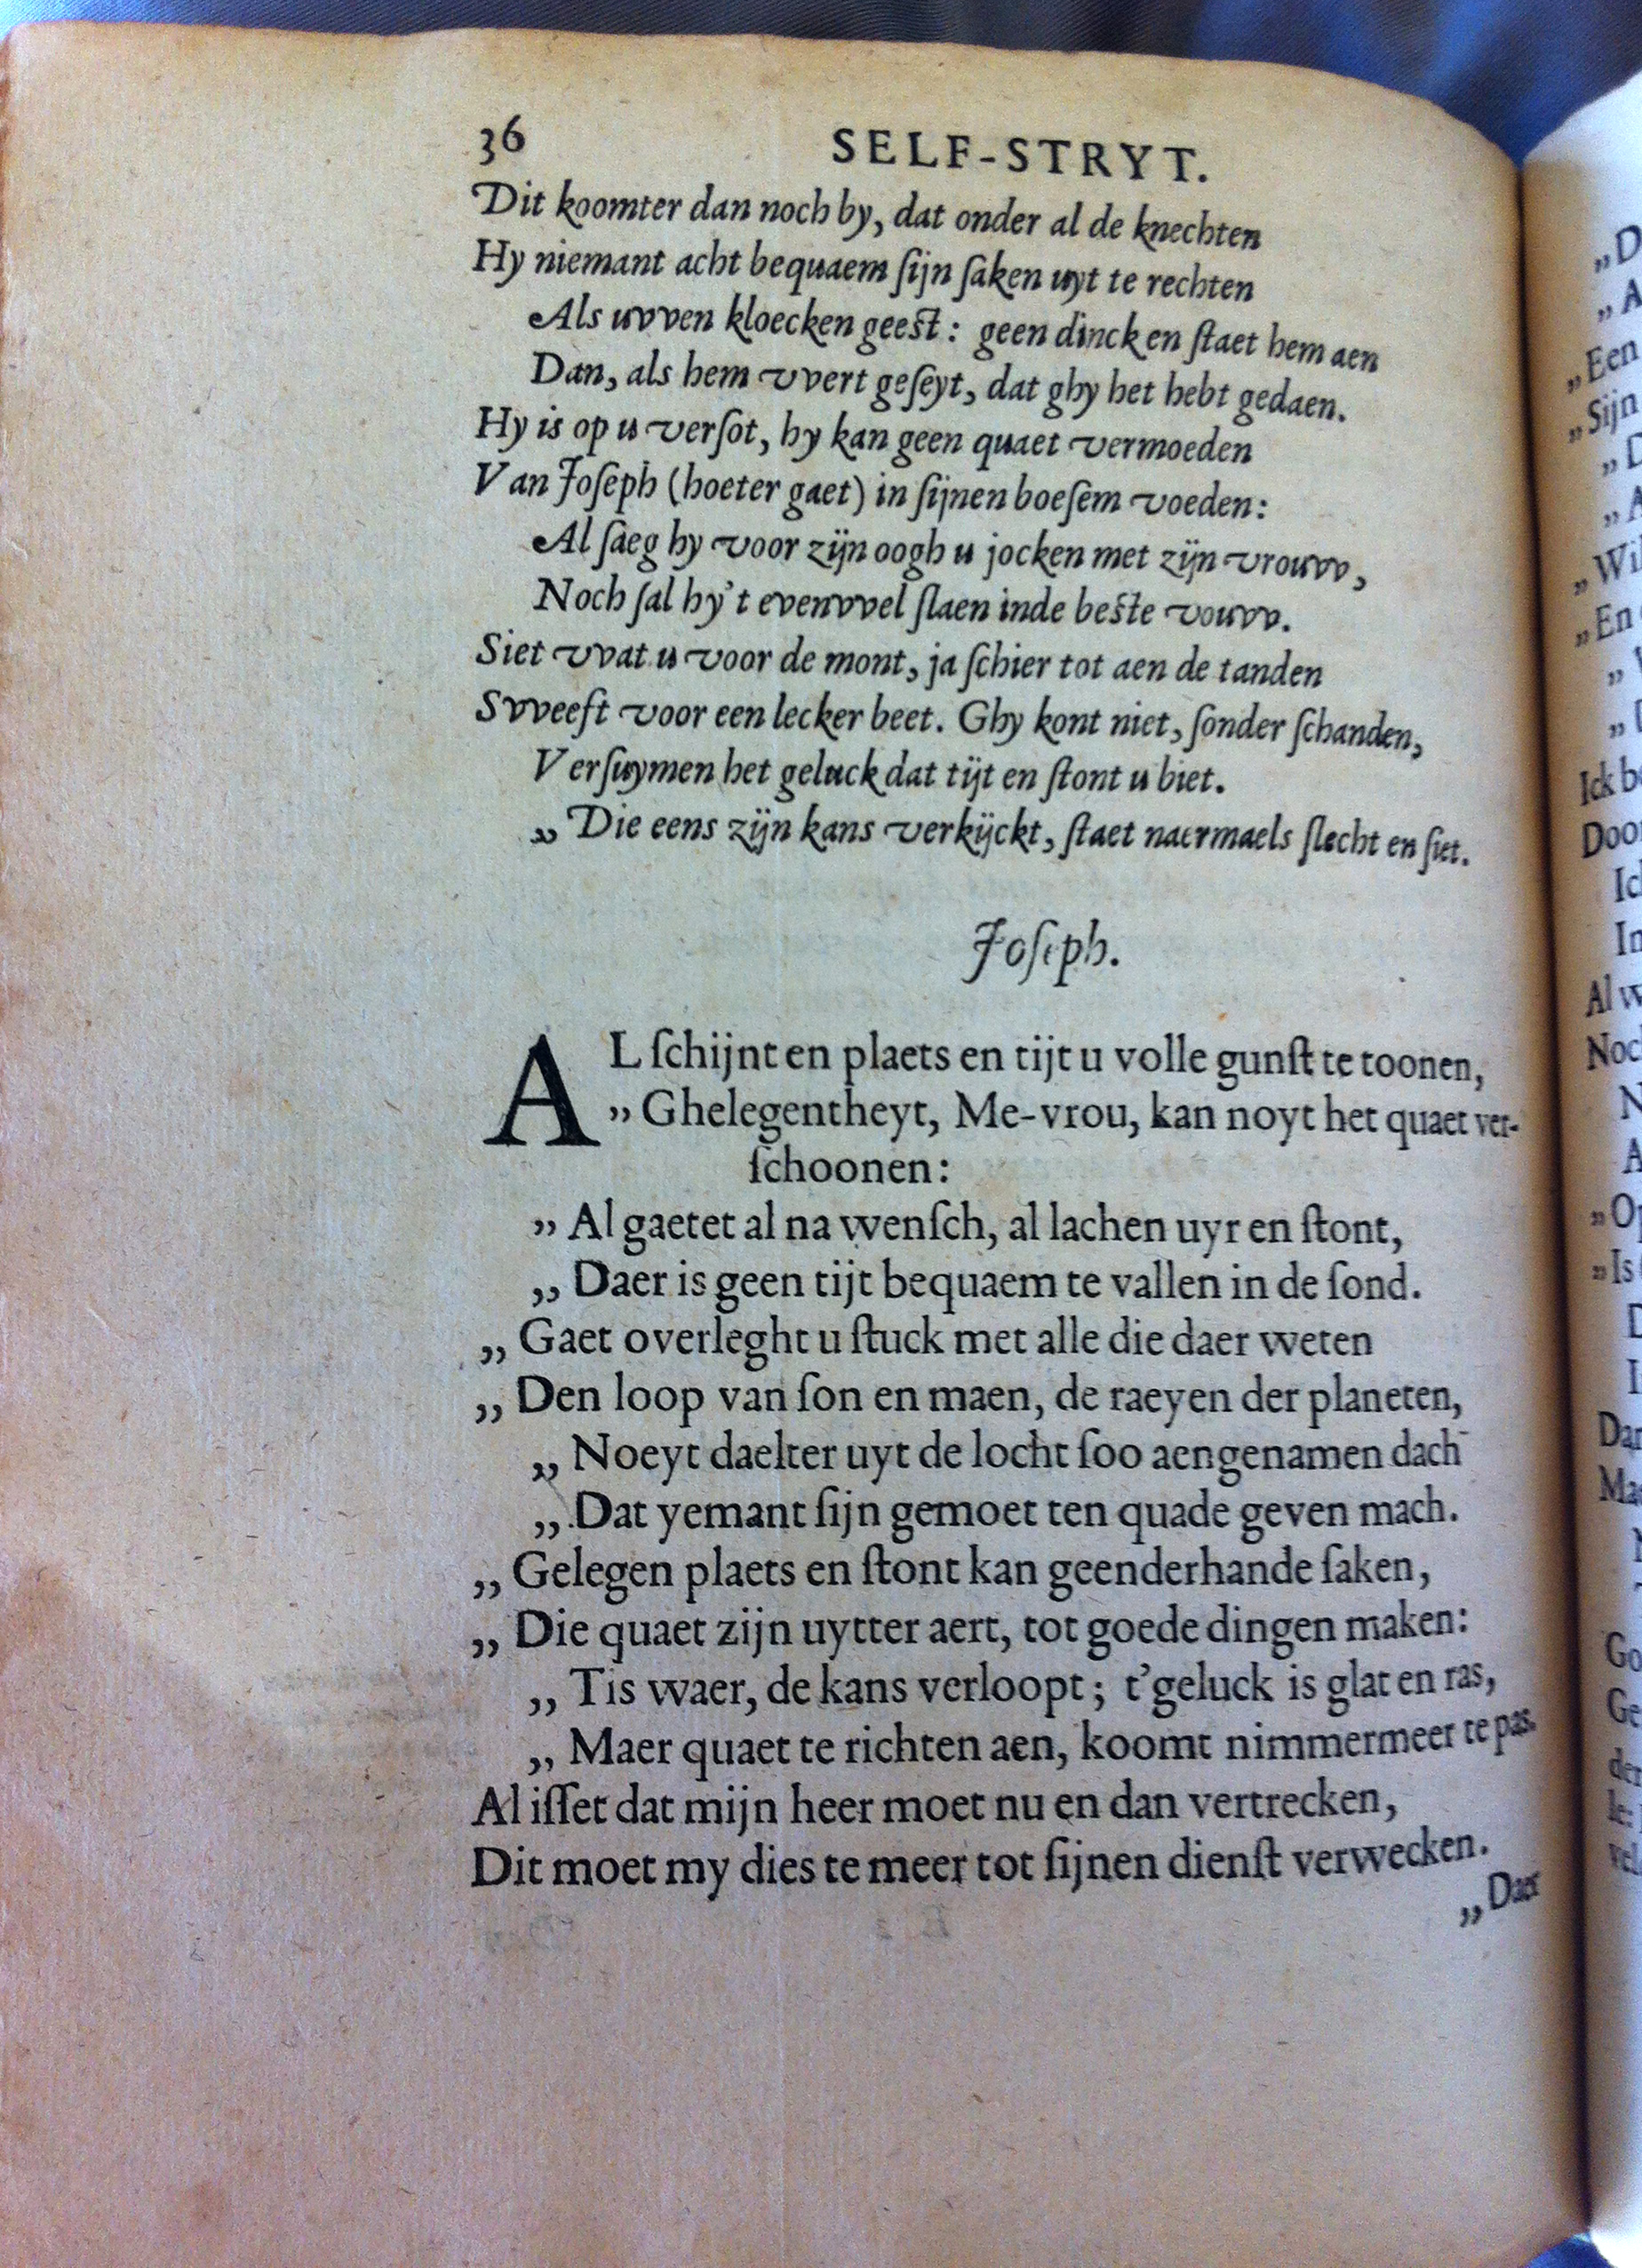 36 SELF-STRYT.
Dit koomter dan noch by, dat onder al de knechten
Hy niemant acht bequaem ſijn ſaken uyt te rechten
Als uvven kloecken geeſt: geen dinck en ſtaet hem aen
Dan, als hem vvert geſeyt, dat ghy het hebt gedaen.
Hy is op u verſot, hy kan geen quaet vermoeden
Van Joſeph (hoeter gaet) in ſijnen boeſem voeden:
Al ſaeg hy voor zijn oogh u jocken met zijn vrouvv,
Noch ſal hy't evenvvel ſlaen inde beſte vouvv.
Siet vvat u voor de mont, ja ſchier tot aen de tanden
Svveeft voor een lecker beet. Ghy kont niet, ſonder ſchanden,
Verſuymen het geluck dat tijt en ſtont u biet.
„ Die eens zijn kans verkijckt, ſtaet naermaels ſlecht en ſiet.
Joſeph.
AL ſchijnt en plaets en tijt u volle gunſt te toonen,
„ Ghelegentheyt, Me-vrou, kan noyt het quaet ver-
ſchoonen:
„ Al gaetet al na wenſch, al lachen uyr en ſtont,
„ Daer is geen tijt bequaem te vallen in de ſond.
„ Gaet overleght u ſtuck met alle die daer weten
„ Den loop van ſon en maen, de raeyen der planeten,
„ Noeyt daelter uyt de locht ſoo aengenamen dach
„ Dat yemant ſijn gemoet ten quade geven mach.
„ Gelegen plaets en ſtont kan geenderhande ſaken,
„ Die quaet zijn uytter aert, tot goede dingen maken:
„ Tis waer, de kans verloopt; t'geluck is glat en ras,
„ Maer quaet te richten aen, koomt nimmermeer te pas.
Al iſſet dat mijn heer moet nu en dan vertrecken,
Dit moet my dies te meer tot ſijnen dienſt verwecken.
„ Daer
„D
„A
„Een
„Sijn
„D
„A
„Wil
„En
Ick b
Door
Ick
In
Al w
Noc
N
A
„Op
„Is
D
I
Dar
Ma
Go
Ge
der